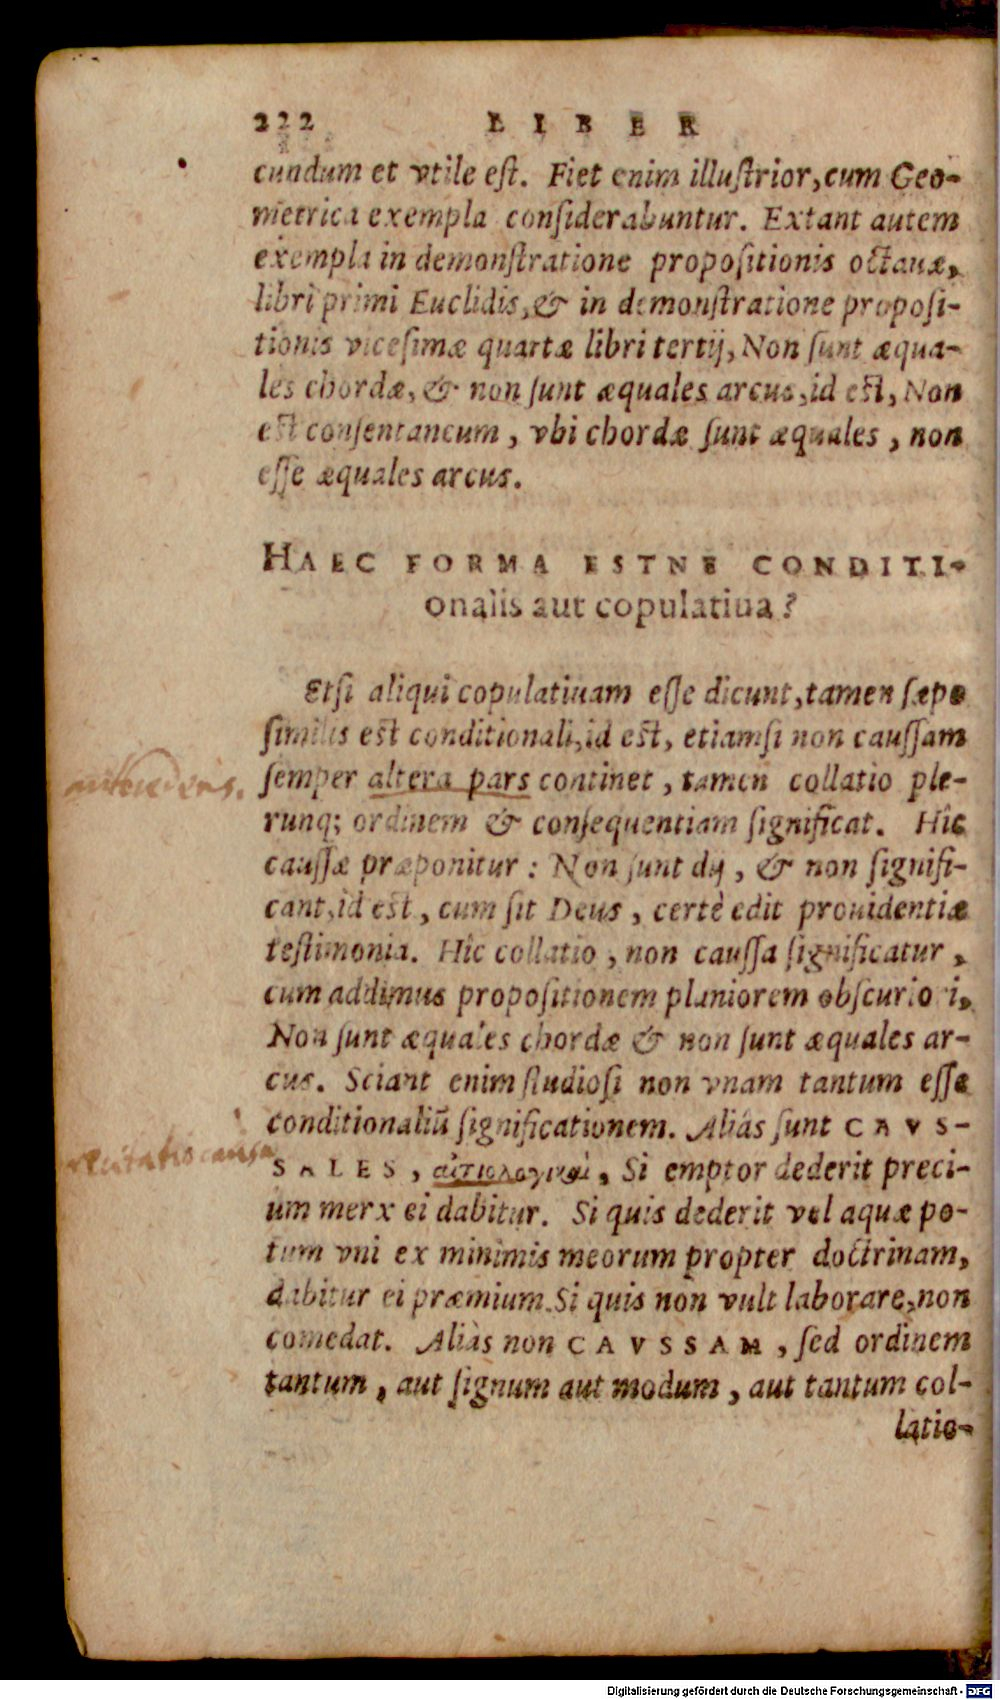 222 LIBER
cundum et vtile eſt. Fiet enim illuſtrior, cum Geo-
metrica exempla conſiderabuntur. Extant autem
exempla in demonſtratione propoſitionis octauæ,
libri primi Euclidis, & in demonſtratione propoſi-
tionis viceſimæ quartæ libri tertij, Non ſunt æqua-
les chordæ, & non ſunt æquales arcus, id eſt, Non
eſt conſentaneum, vbi chordæ ſunt æquales, non
eſſe æquales arcus.
HAEC FORMA ESTNE CONDITI-
onalis aut copulatiua?
Etſi aliqui copulatiuam eſſe dicunt, tamen ſæpe
ſimilis eſt conditionali, id eſt, etiamſi non cauſſam
ſemper altera pars continet, tamen collatio ple-
runq; ordinem & conſequentiam ſignificat. Hîc
cauſſæ præponitur: Non ſunt dij, & non ſignifi-
cant, id eſt, cum ſit Deus, certè edit prouidentiæ
teſtimonia. Hîc collatio, non cauſſa ſignificatur,
cum addimus propoſitionem planiorem obſcuriori,
Non ſunt æquales chordæ & non ſunt æquales ar-
cus. Sciant enim ſtudioſi non vnam tantum eſſe
conditionaliũ ſignificationem. Aliàs ſunt CAVS-
SALES, αἰτιολογικαὶ, Si emptor dederit preci-
um merx ei dabitur. Si quis dederit vel aquæ po-
tum vni ex minimis meorum propter doctrinam,
dabitur ei præmium. Si quis non vult laborare, non
comedat. Aliàs non CAVSSAM, ſed ordinem
tantum, aut ſignum aut modum, aut tantum col-
latio-
antecedens.
causa
Digitalisierung gefördert durch die Deutsche Forschungsgemeinschaft - DFG